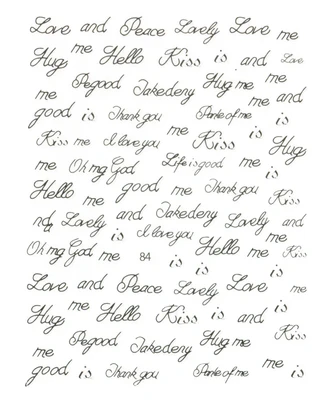 Love and Peace Lovely Love me
Hug me Hello Kiss is and Love
me Pegood Takedeny Hug me me and
good is Thank you is
Kiss me I love you me Kiss Hug
me Oh mg God Life is good me is
Hello me good me Thank you Kiss
Lovely and Takedeny Lovely and
Oh mg God me is I love you Hello me me Kiss
84 is is is
Love and Peace Lovely Love me
Hug me Hello Kiss is and Kiss
me Pegood Takedeny Hug me me
good is Thank you me is